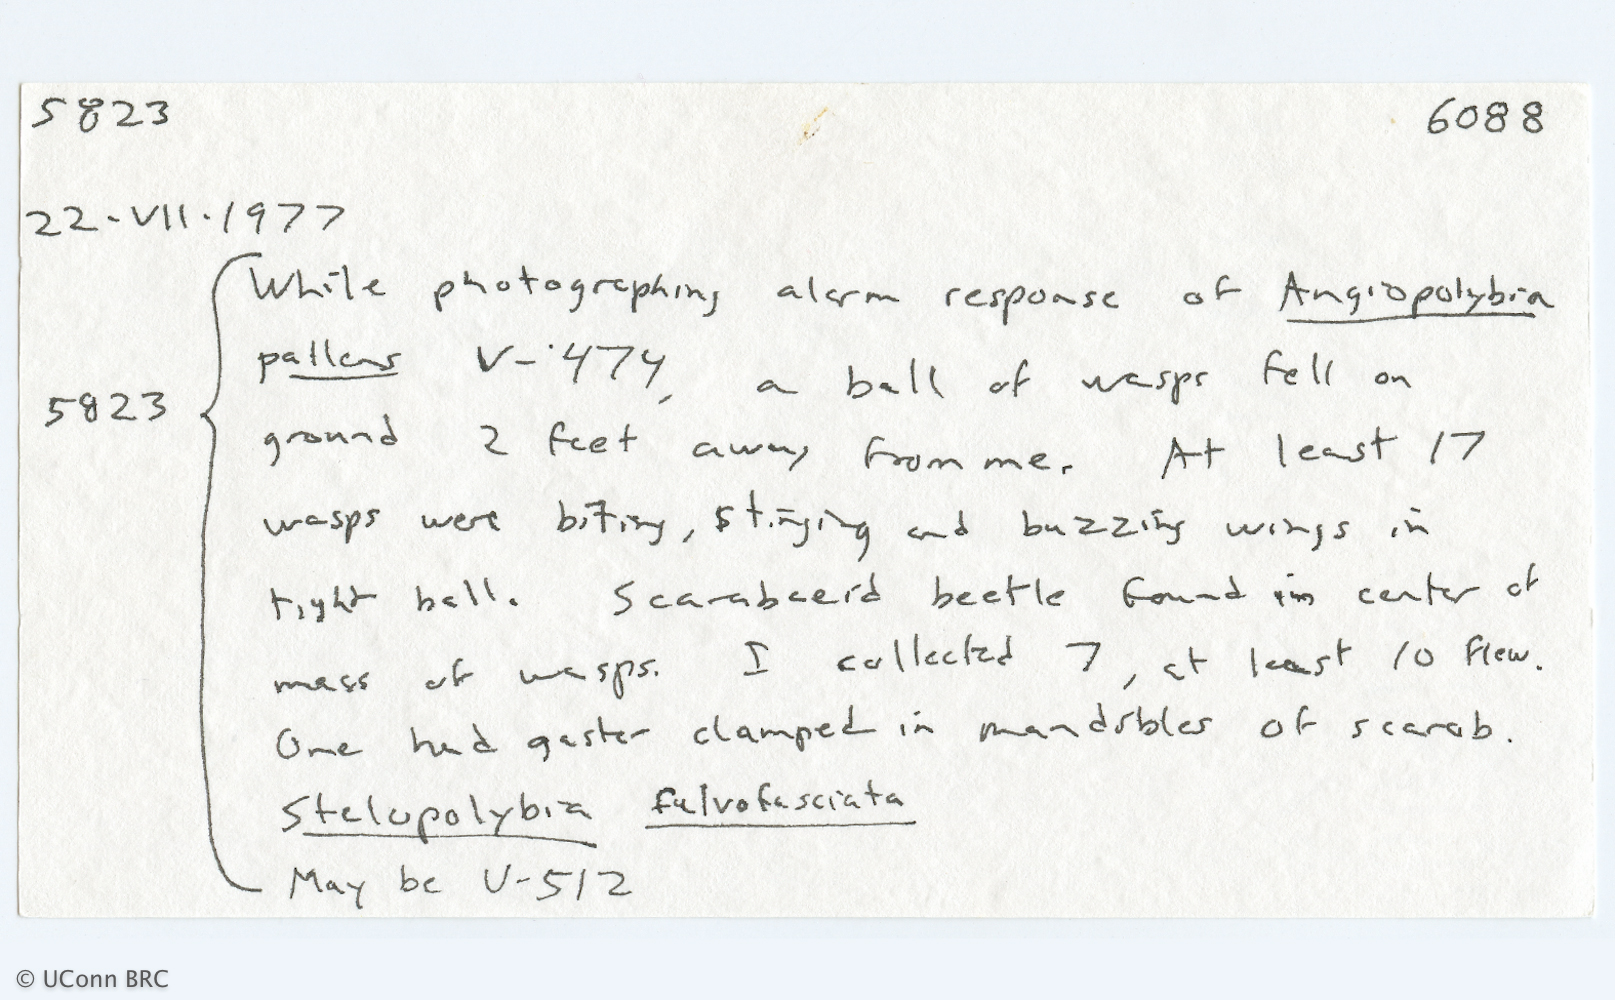 5823 6088
22-VII-1977
While photographing alarm response of Angiopolybia
pallens V-474, a ball of wasps fell on
5823 ground 2 feet away from me. At least 17
wasps were biting, stinging and buzzing wings in
tight ball. Scarabaeid beetle found in center of
mass of wasps. I collected 7, at least 10 flew.
One had gaster clamped in mandibles of scarab.
Stelopolybia fulvofasciata
May be V-512
© UConn BRC